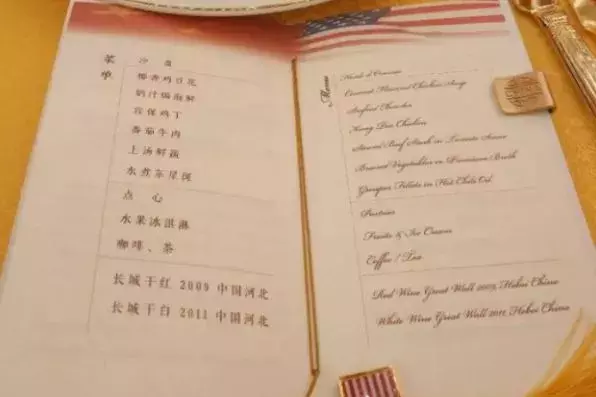 菜单
冷 盘
椰香鸡豆花
奶汁焗海鲜
宫保鸡丁
番茄牛肉
上汤鲜蔬
水煮东星斑
点 心
水果冰淇淋
咖啡、茶
长城干红 2009 中国河北
长城干白 2011 中国河北
Menu
Coconut Flavored Chicken Soup
Seafood Chowder
Kung Pao Chicken
Stewed Beef Steak in Tomato Sauce
Braised Vegetables in Premium Broth
Grouper Fillets in Hot Chili Oil
Pastries
Fruits & Ice Cream
Coffee / Tea
Red Wine Great Wall 2009, Hebei China
White Wine Great Wall 2011, Hebei China